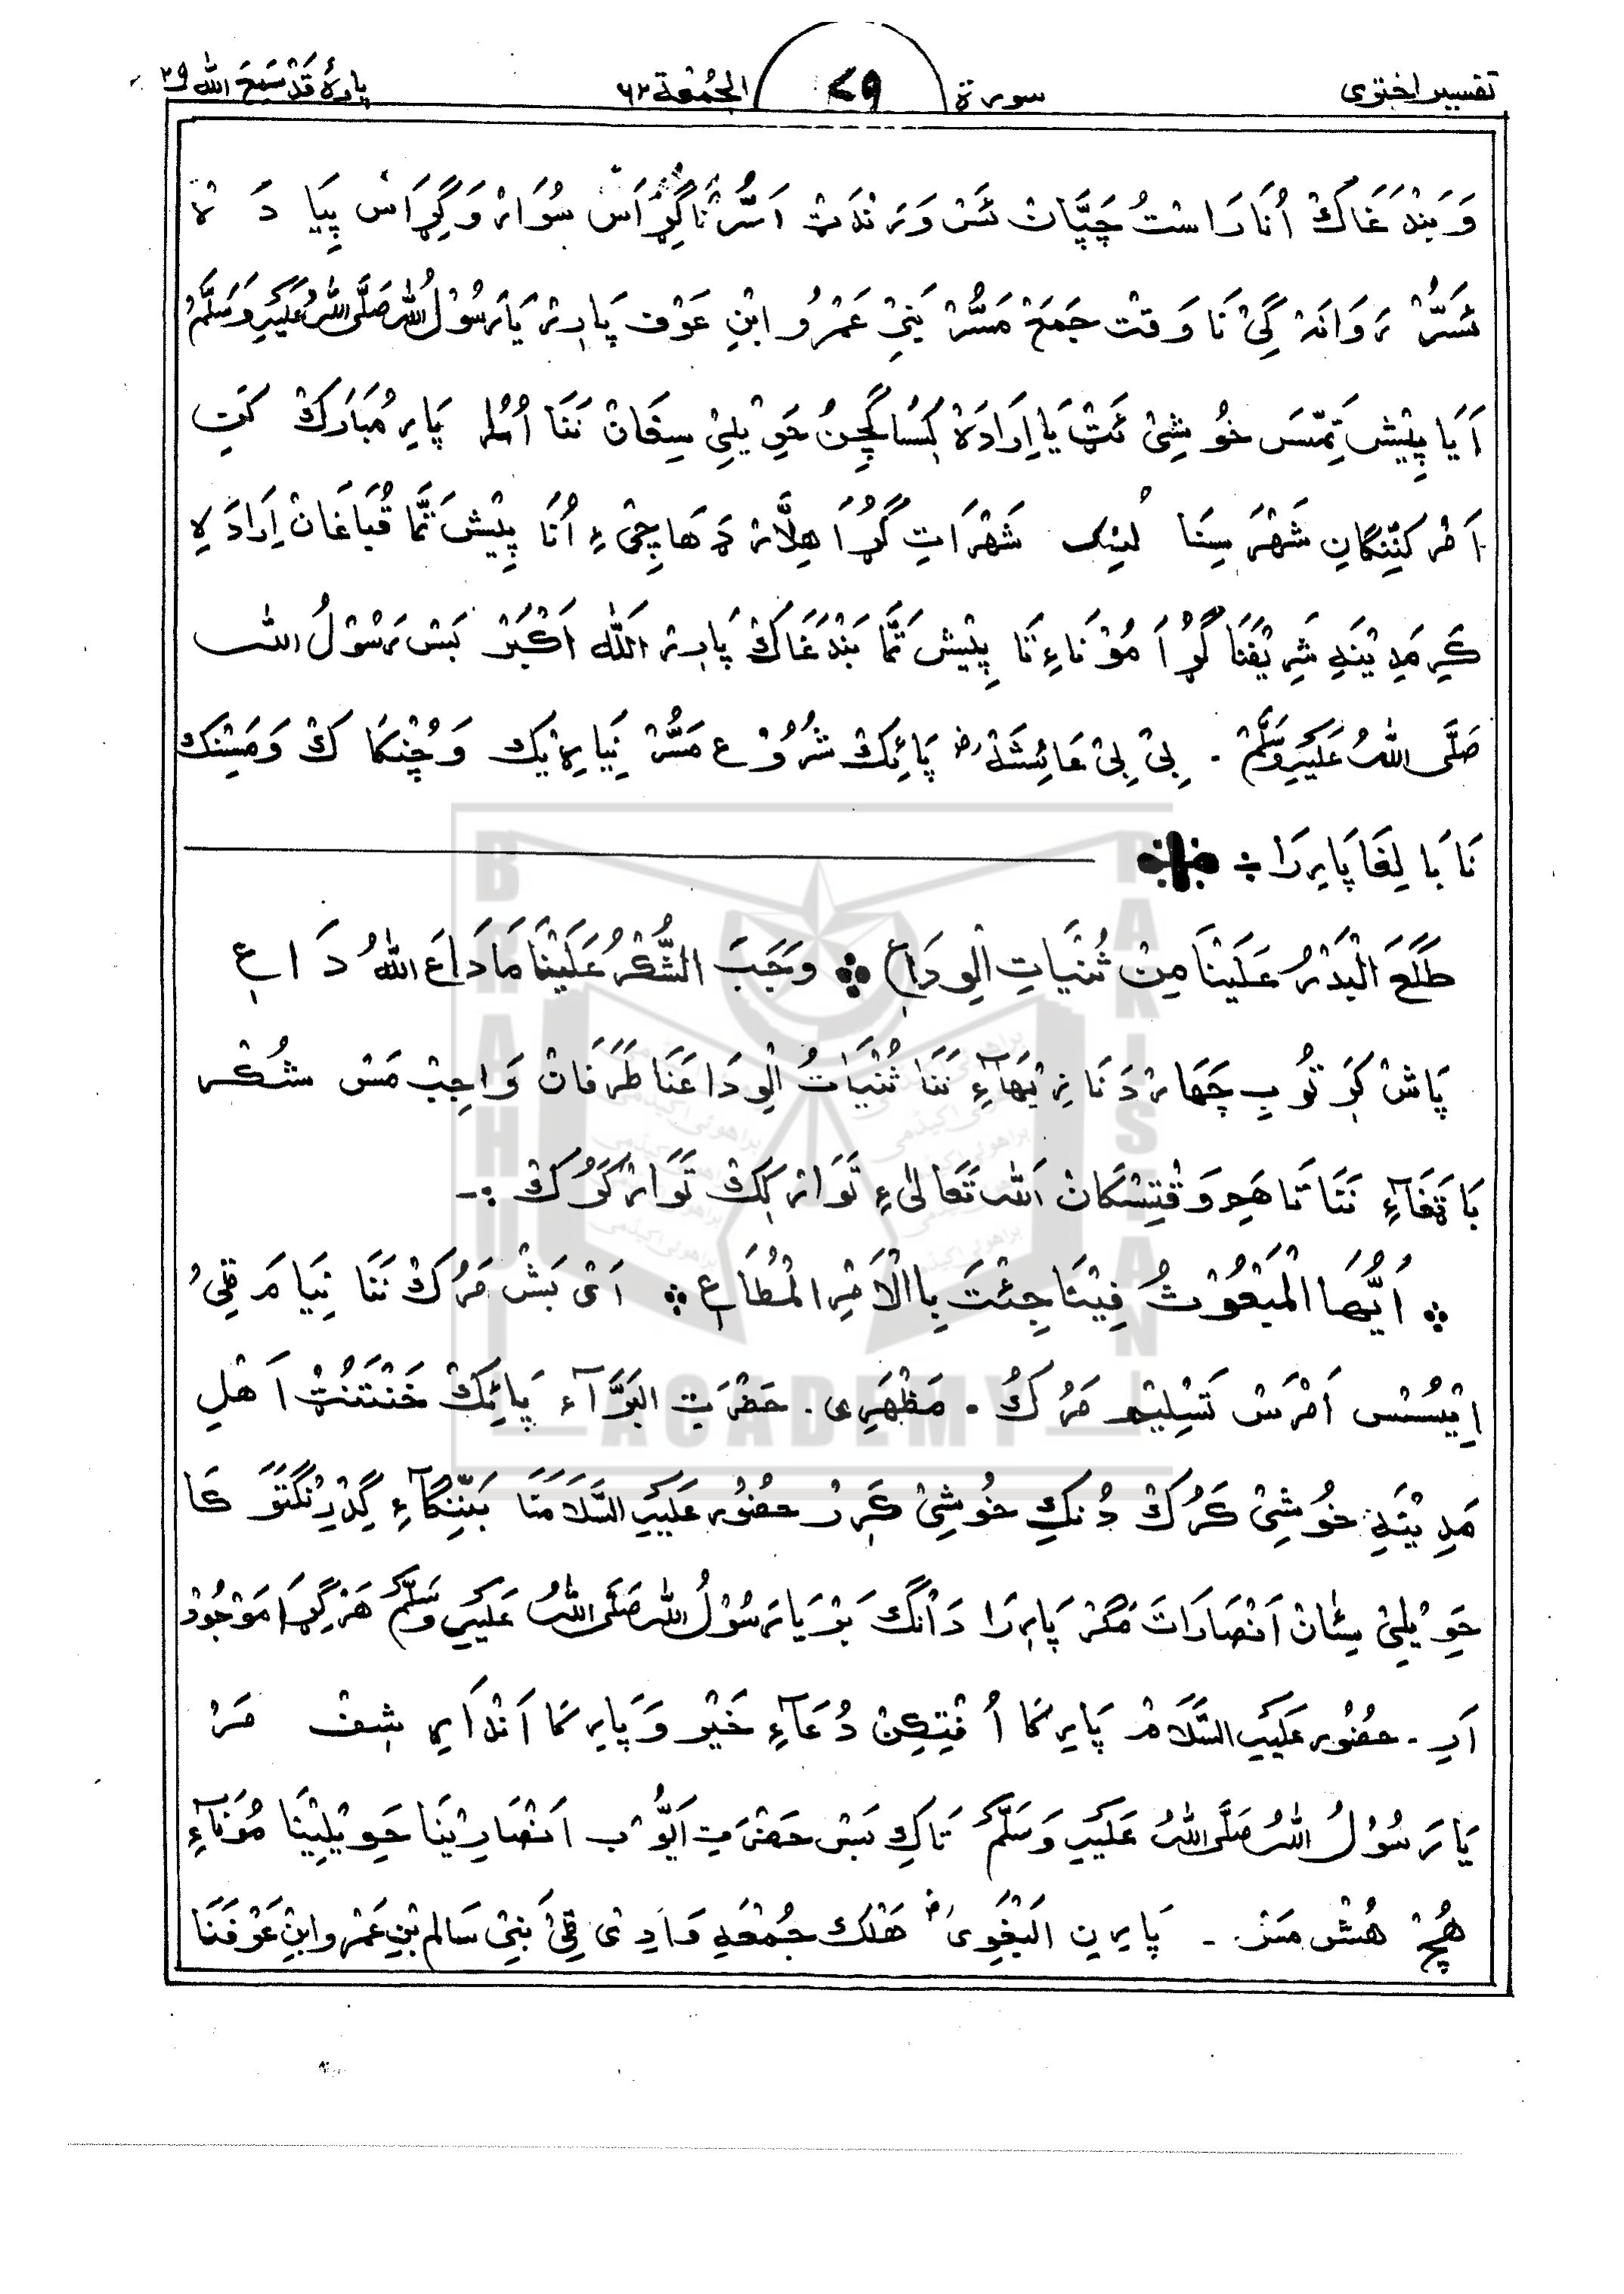 تفسیر اختری سورة ٧٩ الجُمُعَة ٦٢ پارہ قَدْ سَمِعَ اللہ ٢٩
وَ بَنْدَغَاکْ اُنَا رَاسْتُ چَپَّانْ ئَسْ وَ رَنْدَٹْ اَسُّرْ نَا کِڑاَسْ سُوَارْ وَ کِڑاَسْ پِیَادَہْ
ئَسُّرْ رَوَانَہْ کِیْ نَا وَقتْ جَمَعْ مَسُّرْ بَنِیْ عَمْرُو ابْنِ عَوْف پَارِرْ یَا رَسُوْلُ اللہِ صَلَّی اللہُ عَلَیْہِ وَسَلَّمْ
اَیَا پِیْش تَمِّسَ خُوشِیْ ئَٹْ یَا اِرَادَہْ کِسُا کِچِنُ حَوِیْلِیْ سِغَانْ نَنَا اُسُلہ پَارِ مُبَارَکْ کَتِ
اَمْر کَنِّنگانِ شَهْرَ سِنَا شَهْرَاتِ گُڑا هِلَّارْ ڈَهَاچِیْ ءِ اُنَا پِیْشَ تَمَّا قُبَاغَانْ اِرَادَہِ
کَرِ مَدِیْنَہِ شَرِیْفَنَا گُڑا مُوْنَاءِ تَا پِیْشَ تَمَّا بَنْدَغَاکْ پَارِرْ اَللہُ اَکْبَرْ بَسْ رَسُوْلُ اللہ
صَلَّی اللہُ عَلَیْہِ وَسَلَّمْ ۔ بِیْ بِیْ عَائِشَہْ رض پَائِکْ شُرُوْع مَسُّرْ نِیَارِیْک وَ چُنکَاکْ وَ مَسِنک
نَا بَالِغَا پَارِرَا ÷
طَلَعَ الْبَدْرُ عَلَیْنَا مِنْ ثَنْیَاتِ الْوِدَاعِ وَجَبَ الشُّکْرُ عَلَیْنَا مَا دَاعَ اللہُ دَاعِ
پَاشْ کَرِ تُوبِ چَهَارْدَنَا زِیْهَآءِ نَنَا ثُنْیَاتُ الْوِدَاعَنَا طَرَفَانْ وَاجِبْ مَسْ شُکْر
بَاتِغَآءِ نَنَا تَا هَرِ وَقْتِسْکَانْ اَللہ تَعَالیٰ ءِ تَوَارْ کِکْ تَوَارْ کَرُکْ ۔
اَیُّهَا الْمَبْعُوْثُ فِیْنَا جِئْتَ بِاالْاَمْرِ الْمُطَاعِ اَیْ بَشْ مَرُکْ نَنَا نِیَامَ قِیْ
اِیْسُسْ اَمْرَسْ تَسْلِیْم مَرُکُ ۔ مَظْهَرِی ۔ حَضْرَتِ البَرَّآء پَائِکْ خَنْتَنُٹْ اَهْلِ
مَدِیْنَہِ خُوشِیْ کَرُکْ دُنکِ خُوشِیْ کَرِر حضُور عَلَیْہِ السَّلَامَنَا بَنِّنِگآءِ گِدْرِنگَتَوَ کَا
حَوِیْلِیْ سِئَانْ اَنْصَارَاتَ مَگَرْ پَارِرَا دَانْگ بَوْ یَا رَسُوْلُ اللہِ صَلَّی اللہُ عَلَیْہِ وَسَلَّمْ هَرْ کِڑا مَوْجُوْدْ
اَرِ ۔ حضُور عَلَیْہِ السَّلَامْ پَارِکَا اُفْتِکِنْ دُعَآءِ خَیْر وَ پَارِکَا اَنْدَا یِہ شِفْ مَرْ
یَا رَسُوْلُ اللہُ صَلَّی اللہُ عَلَیْہِ وَسَلَّمْ تَاکِ بَسْ حَضْرَتِ اَیُّوْب اَنْصَارِیْنَا حَوِیْلِیْنَا مُوْنَآءِ
هُچْ هُشْ مَسْ ۔ پَارِیِن الْبَغْوِیْ رض هَلْک جُمْعَہِ وَادِیْ قِیْ بَنِیْ سَالِم بْنِ عَمْرِو ابْنِ عَوْفَنَا
BRAHUI ACADEMY PAKISTAN